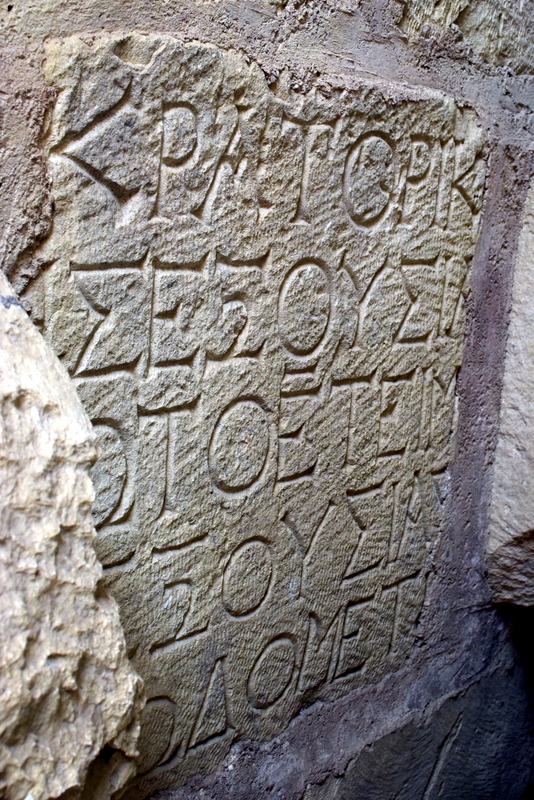 ΚΡΑΤΟΡΙΚ
ΣΕΞΟΥΣΙΑ
ΟΤΟΕΤΕΙΜ
ΕΞΟΥΣΙΑ
ΟΔΟΜΕΤ